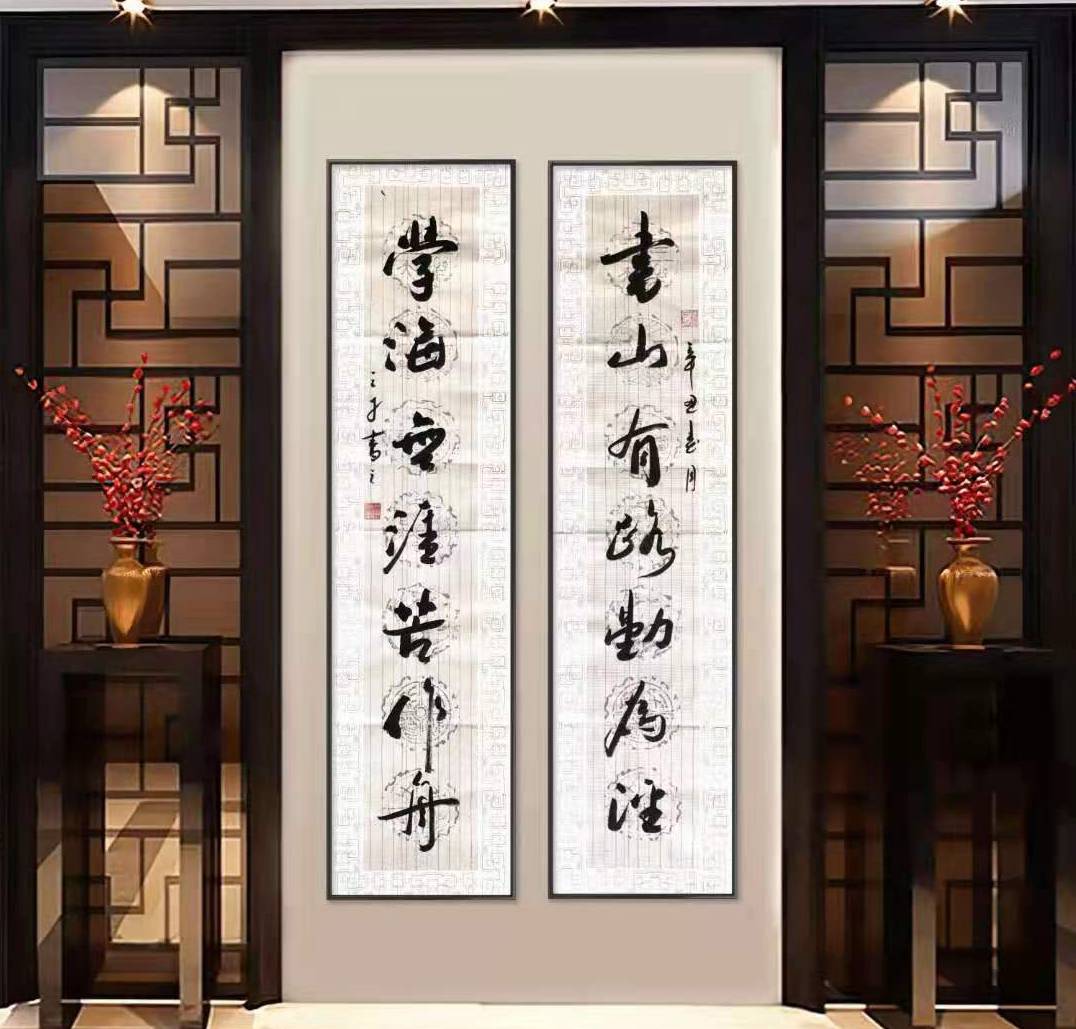 書山有路勤為徑
辛丑春月
學海無涯苦作舟
書之